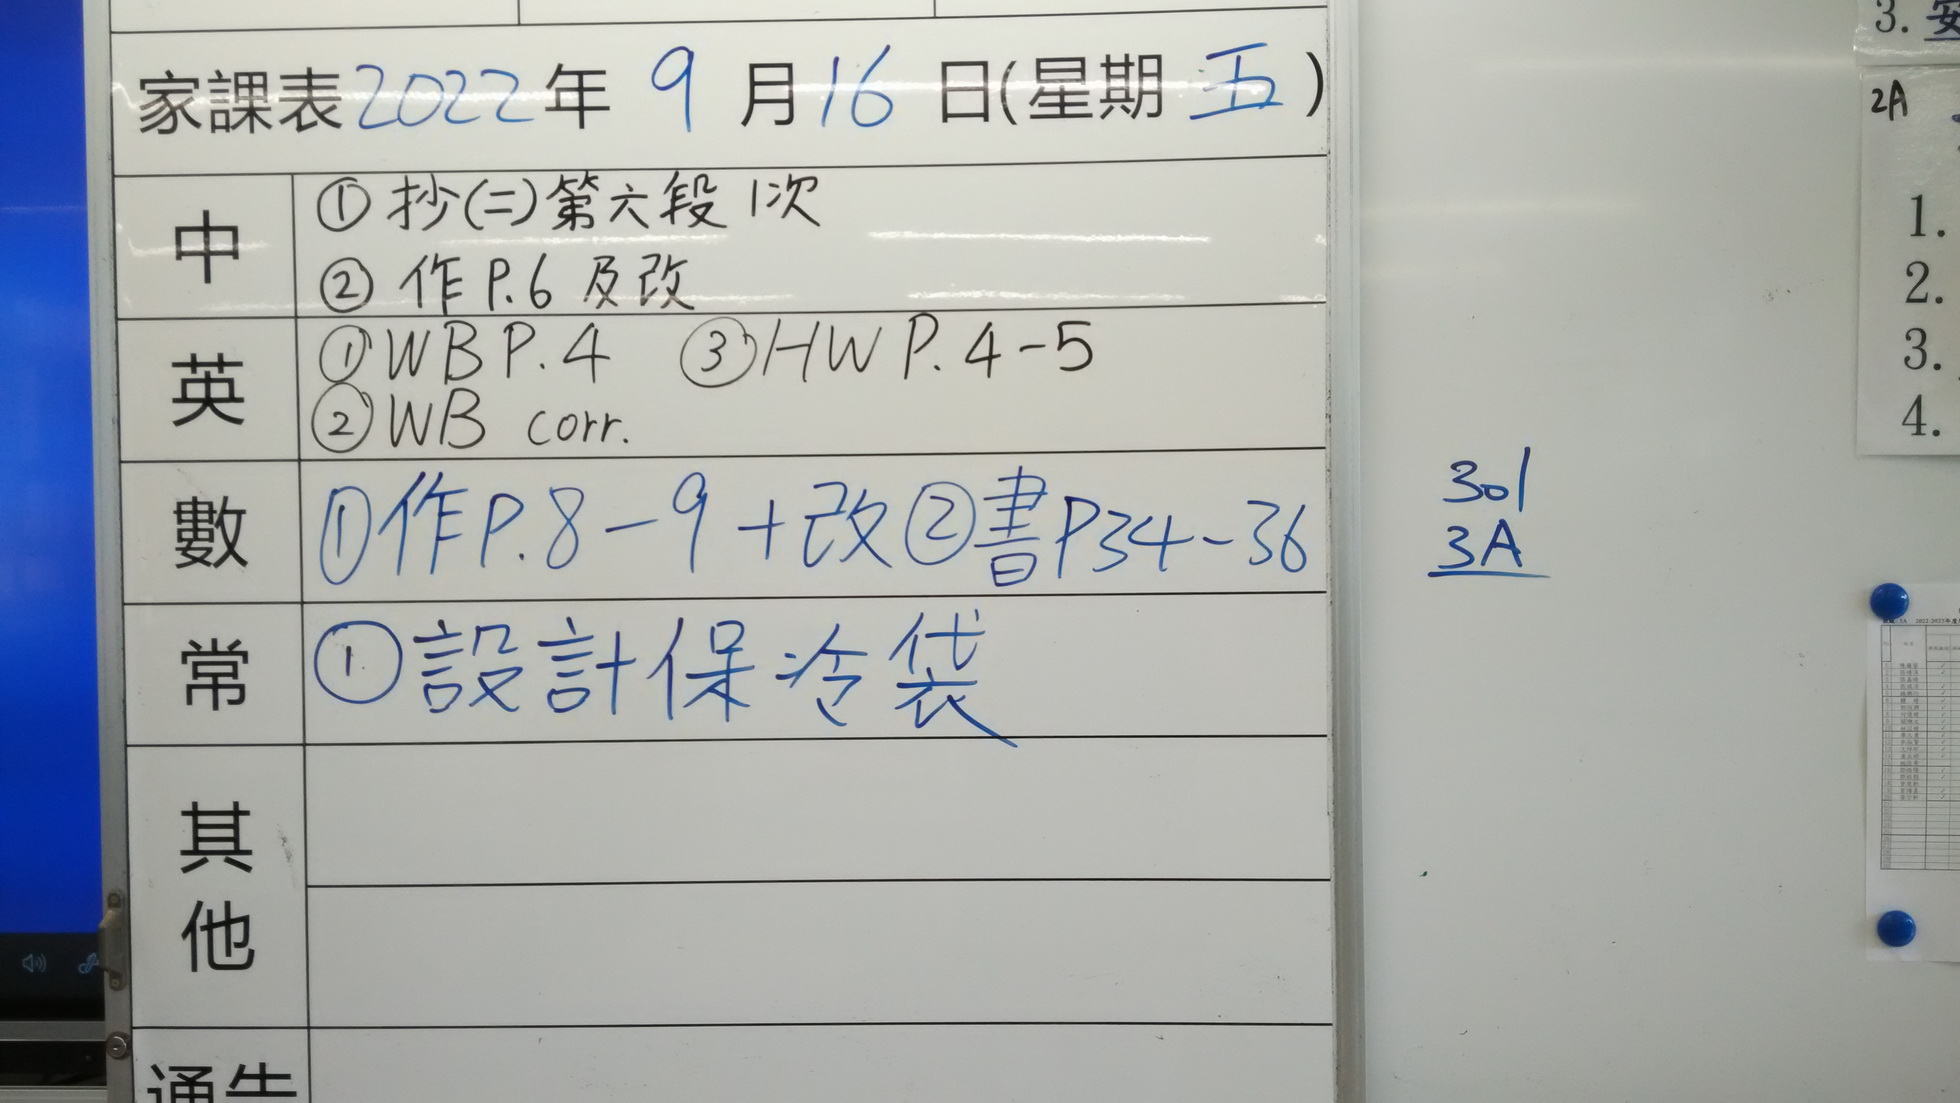 家課表2022年 9月16日(星期五)
中
① 抄(二)第六段 1次
② 作 P.6 及改
英
① WB P.4 ③ HW P.4-5
② WB corr.
數
①作P.8-9+改②書P34-36
常
①設計保冷袋
其他
通告
301
3A
3. 安
2A
1.
2.
3.
4.